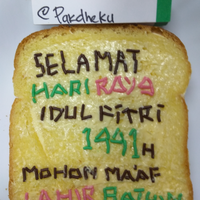 @Pakdheku
SELAMAT
HARI RAYA
IDUL FITRI
1441 H
MOHON MA'AF
LAHIR BATHIN